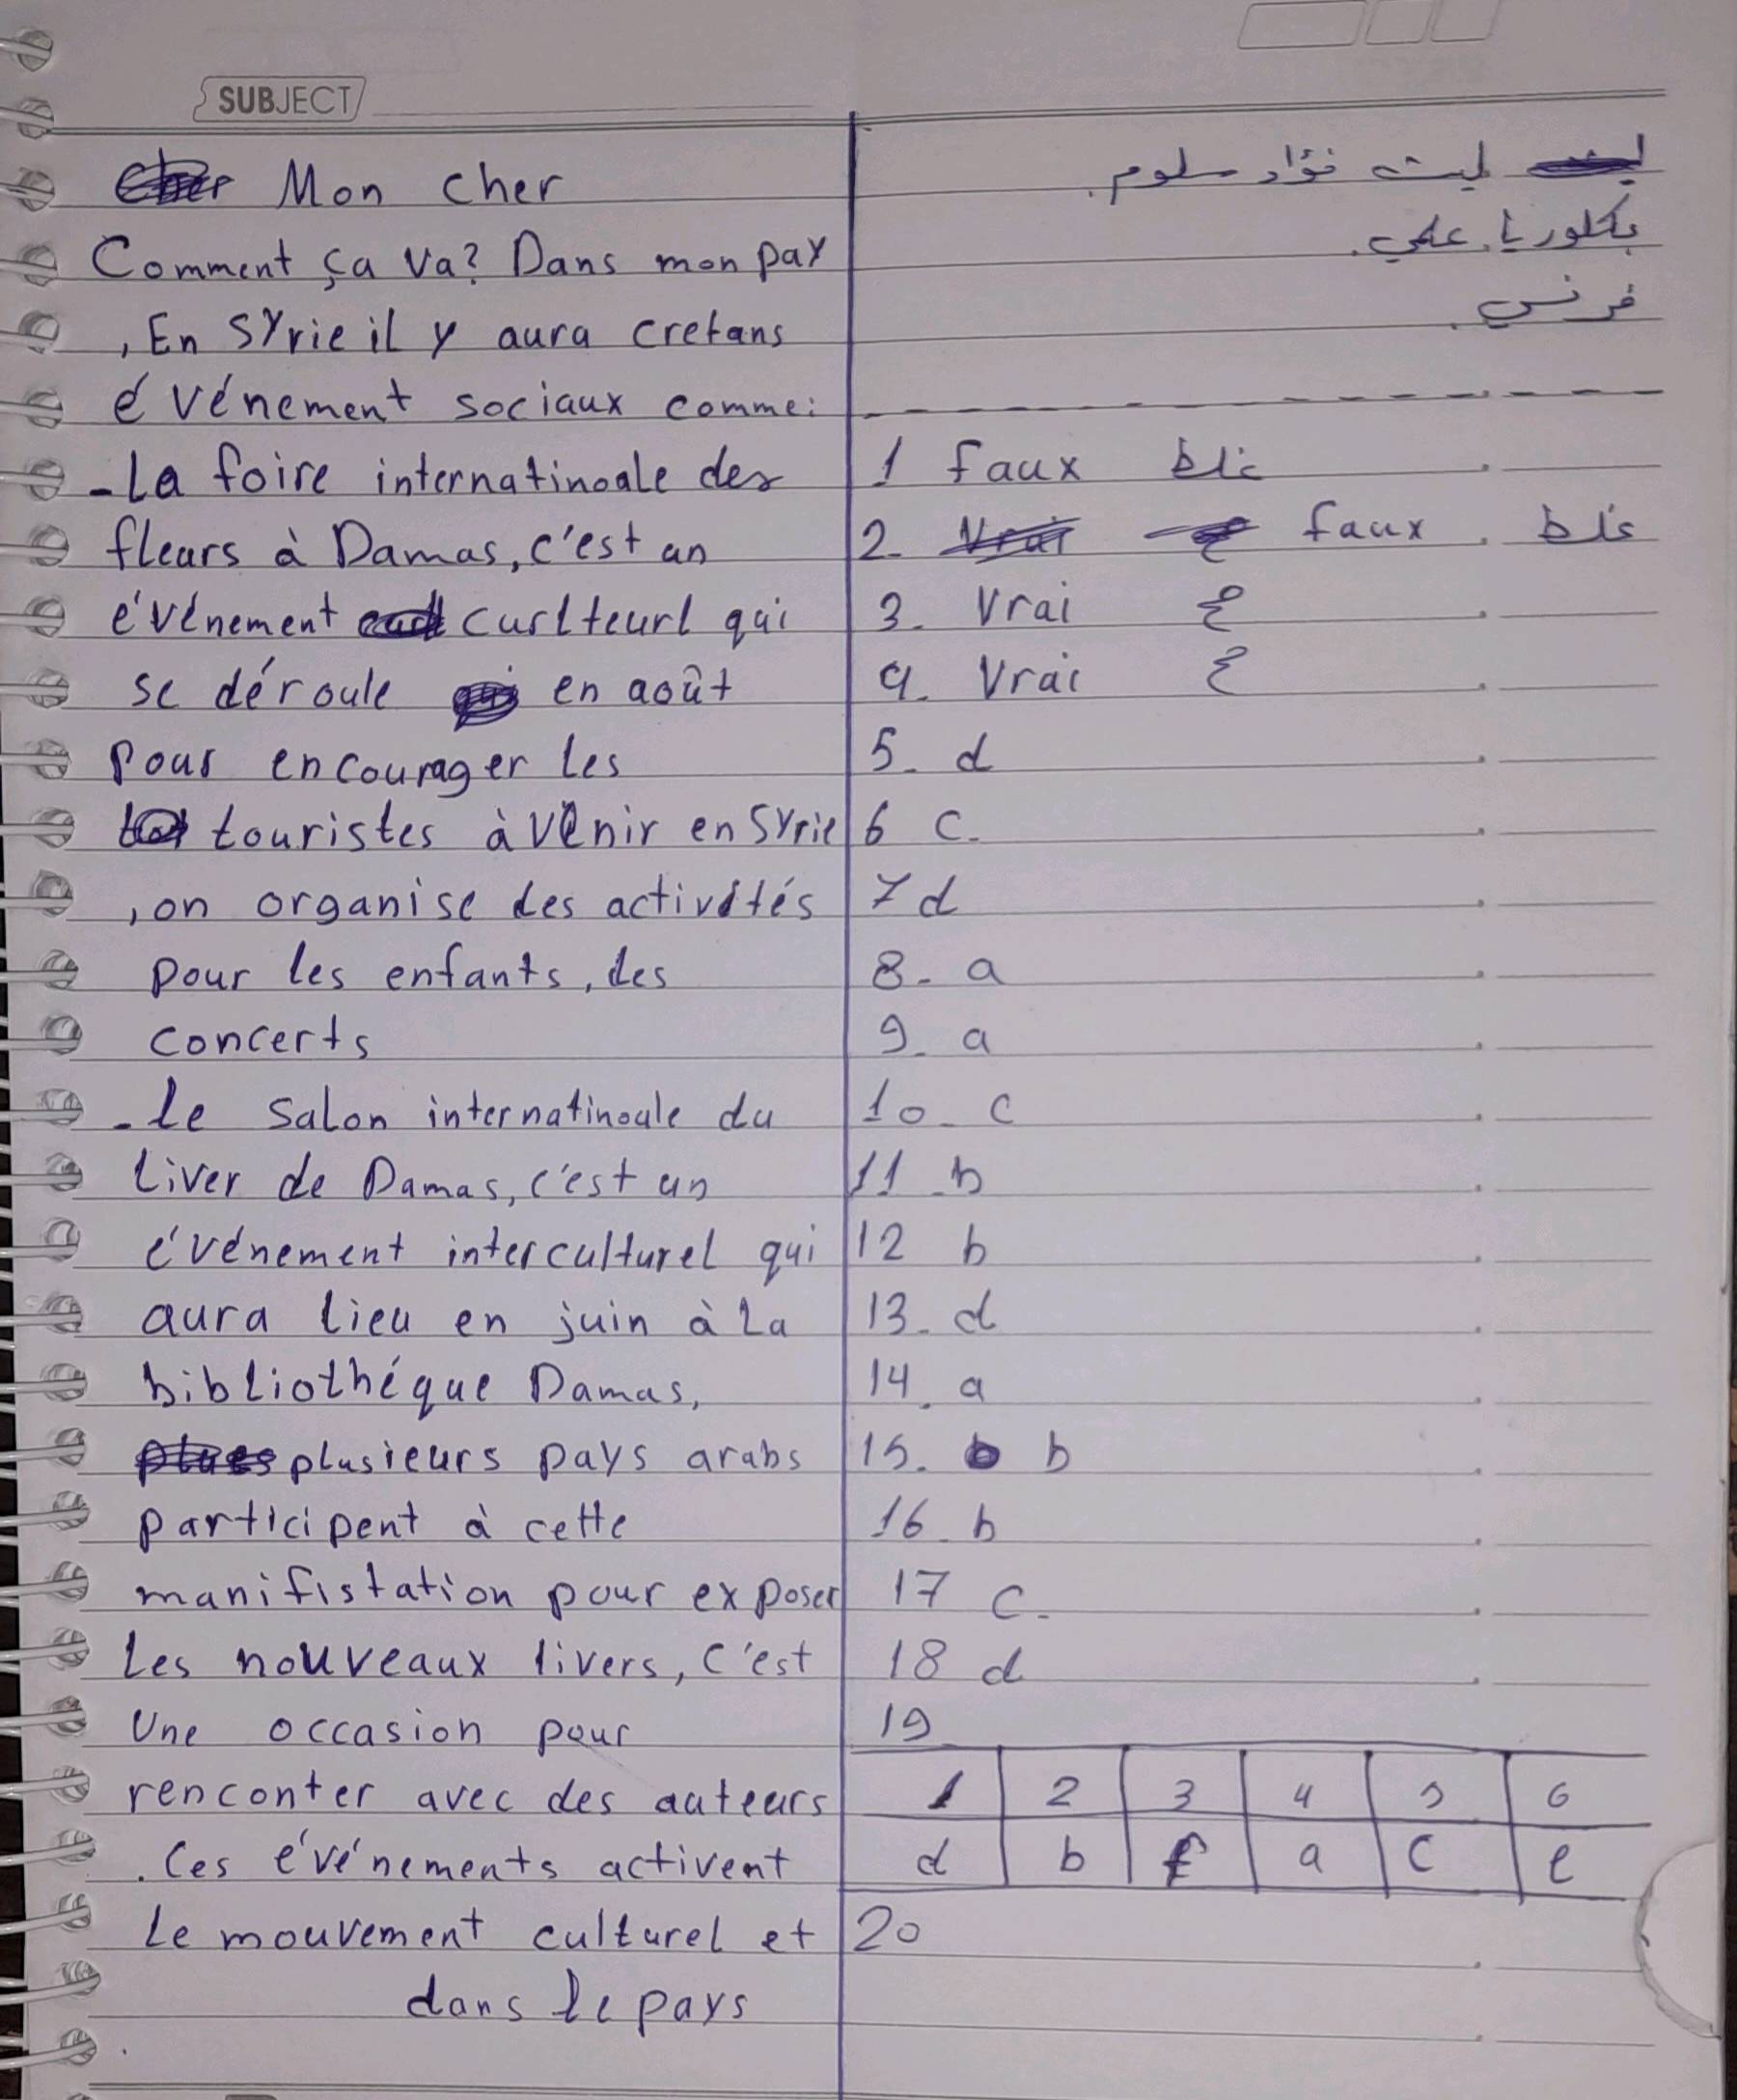 SUBJECT
ليث فؤاد سلوم.
بكلوريا علمي.
فرنسي.
1 faux غلط
2. faux غلط
3. Vrai صح
4. Vrai صح
5. d
6 c.
7 d
8. a
9. a
10. c
11. b
12 b
13. d
14. a
15. b
16. b
17 c.
18 d
19
1 2 3 4 5 6
d b f a c e
20
Mon cher
Comment ça va? Dans mon pay
, En Syrie il y aura cretans
événement sociaux comme:
- La foire internatinoale des
fleurs à Damas, c'est un
événement curlteurl qui
se déroule en août
pour encourager les
touristes à venir en Syrie
, on organise des activités
pour les enfants, des
concerts
- Le salon internatinoale du
liver de Damas, c'est un
événement interculturel qui
aura lieu en juin à La
bibliothéque Damas,
plusieurs pays arabs
participent à cette
manifistation pour exposer
Les nouveaux livers, c'est
Une occasion pour
renconter avec des auteurs
. Ces événements activent
Le mouvement culturel et
dans le pays
.